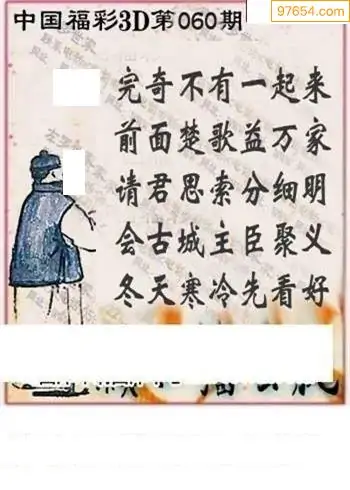 中国福彩3D第060期
97654.com
完奇不有一起来
前面楚歌益万家
请君思索分细明
会古城主臣聚义
冬天寒冷先看好